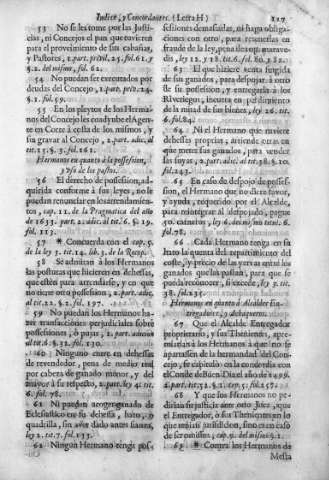 Indice, y Concordantes. (Letra H) 217
53 No se les tome por las Justi-
cias, ni Concejos el pan que tuvieren
para el proveimiento de sus cabañas,
y Pastores, 2. part. privil. 25. fol. 61. y
§ 2. del mismo, fol. 62.
54 No puedan ser executados por
deudas del Concejo, 2. part. privil. 24.
§ 2. fol. 59.
55 En los pleytos de los Herma-
nos del Concejo les coadyube el Agen-
te en Corte à costa de los mismos, y
sin gravar al Concejo, 2. part. adic. al
tit. 25. § 3. fol. 161.
Hermanos en quanto à la possession,
y uso de los pastos.
56 El derecho de possession, ad-
quirida conforme à sus leyes, no le
puedan renunciar en los arrendamien-
tos, cap. 12. de la Pragmatica del año
de 1633. part. 2. adic. al tit. 6. § 29.
fol. 113.
57 * Concuerda con el cap. 5.
de la ley 3. tit. 14. lib. 3. de la Recop.
58 Se admitan à los Hermanos
las posturas que hicieren en dehessas,
que estèn para arrendarse, y en que
no tiene otro possession, 2. part. adic.
al tit. 22. § 2. fol. 197.
59 No puedan los Hermanos ha-
zer transacciones perjudiciales sobre
possessiones, ò pujas, 2. part. adic. con
al tit. 6. § 32. fol. 130.
60 Ninguno entre en dehessas
de revendedor, pena de medio real
por cabeza de ganado menor, y del
mayor à su respecto, 2. part. ley 4. tit.
6. fol. 78.
61 Ni pueden acogerganado de
Eclesiastico en su dehesa, hato, ò
quadrilla, sin aver dado antes fianza,
ley 2. tit. 7. fol. 133.
62 Ningun Hermano tenga pos-
sessiones demasiadas, ni haga obligacio-
nes con otro, para tenerlas en
fraude de la ley, pena de
dis, ley 12. y 18. tit. 6. fol. 80.
63 El que hiziere venta fingida
de sus ganados, para despojar à otro
de su possession, y entregarla à los
Riveriegos, incurra en perdimiento
de la mitad de sus bienes, ley 26. tit.
6. fol. 84.
64 Ni el Hermano que tuviere
dehessas proprias, arriende otras en
que poner sus ganados, para vender
las suyas, 2. part. adic. al tit. 38. § 20.
fol. 243.
65 En caso de despojo de posses-
sion, el Hermano que no diere favor,
y ayuda, requerido por el Alcalde,
para reintegrar al despojado, pague
fol. 76.
66 Cada Hermano tenga en su
hato la quenta del repartimiento del
coste, y precio de las yervas entre los
ganados que las pastan, para que se
pueda reconocer, si excede, ley 3. tit.
38. fol. 235.
Hermano en quanto à Alcaldes En-
tregadores, y Achaqueros.
67 Que el Alcalde Entregador
proprietario, y sus Thenientes, apre-
mien à los Hermanos à que no se
apartassen de la hermandad del Con-
cejo, se expidiò cedula de los Reyes
Catholicos en Medina Di uel año de 1496.
2. part. tit. 52. § 2. cap. 5. fol. 257.
68 Y que los Hermanos no pe-
dirian su justicia ante otro Juez, que
el Entregador, ò sus Thenientes en lo
que mira à su jurisdicion, sino en caso
de ser omissos, cap. 9. del mismo §.
63 * Contra los Hermanos de
Mesta